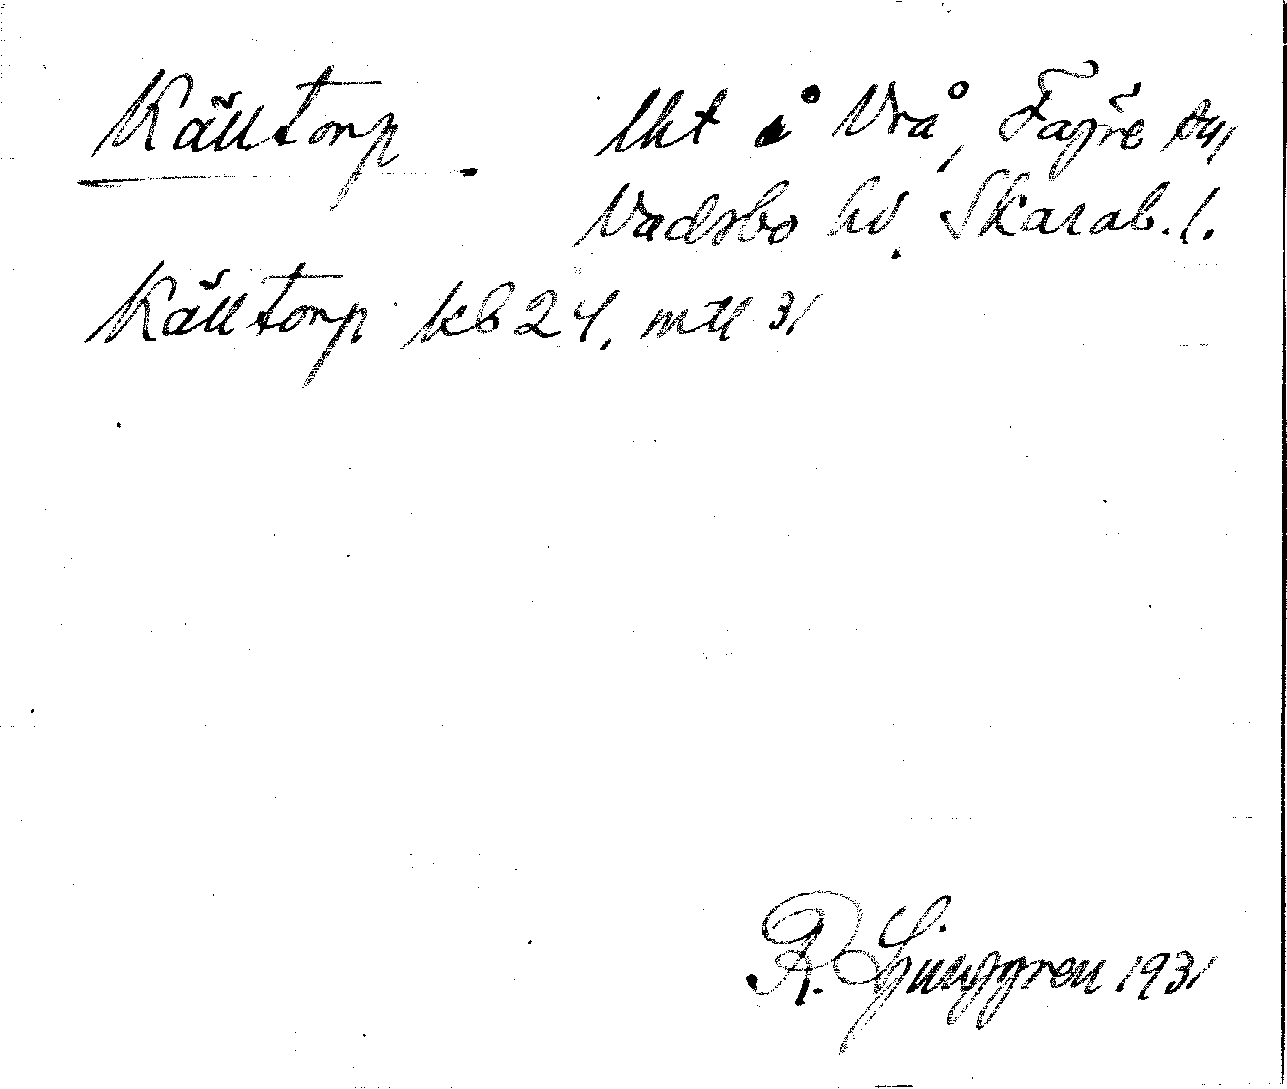 Källtorp. lht å Vrå, Fägre sn,
Vadsbo hd. Skarab. l.
Källtorp kb 24, mtl 31
R. Ljunggren 1931